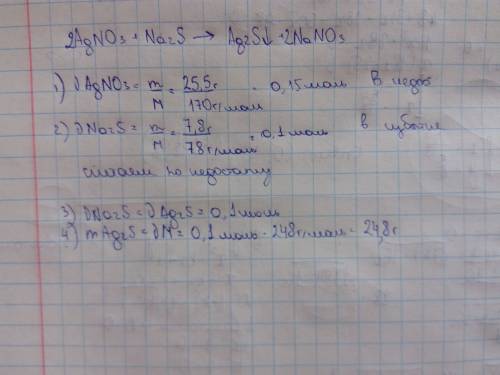 2AgNO3 + Na2S → Ag2S↓ + 2NaNO3
1) ∂AgNO3 = m/M = 25,5г/170г/моль = 0,15моль В недос
2) ∂Na2S = m/M = 7,8г/78г/моль = 0,1моль в избытке
считаем по недостатку
3) ∂Na2S = ∂Ag2S = 0,1моль
4) mAg2S = ∂M = 0,1моль · 248г/моль = 24,8г